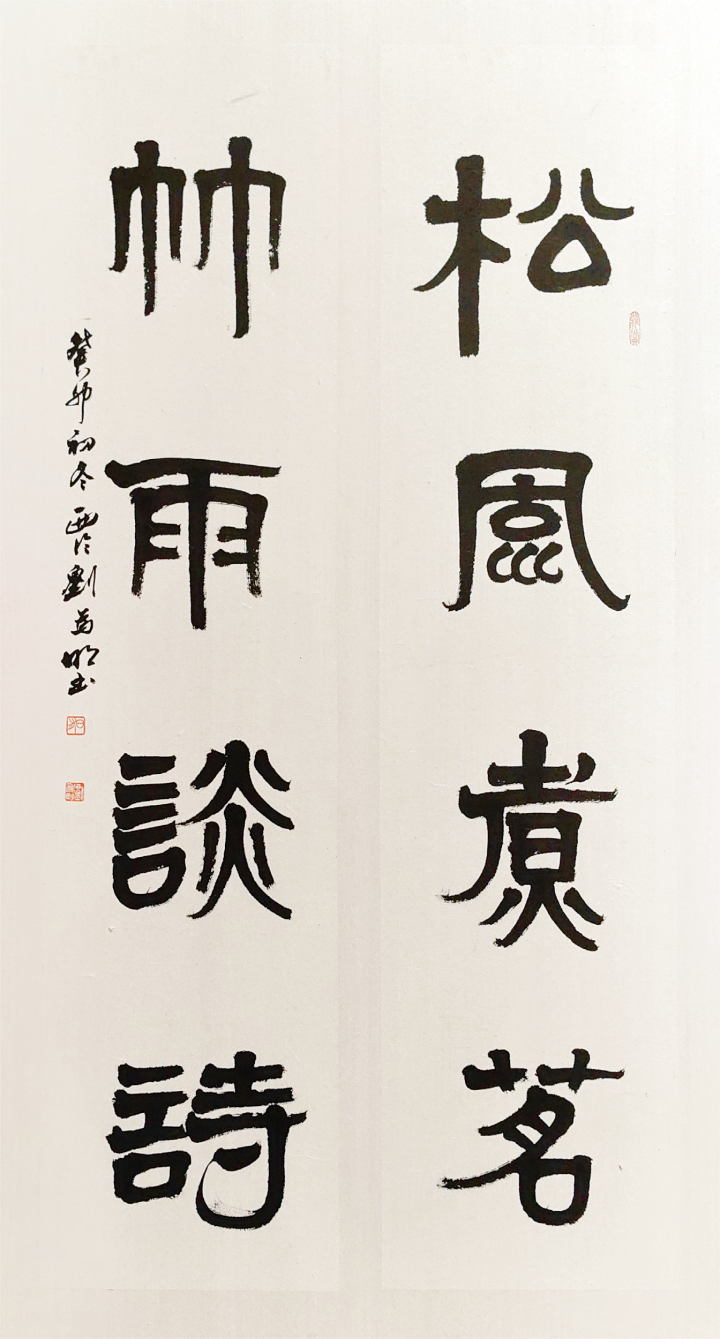 松風煮茗
竹雨談詩
癸卯初冬西泠劉為明書